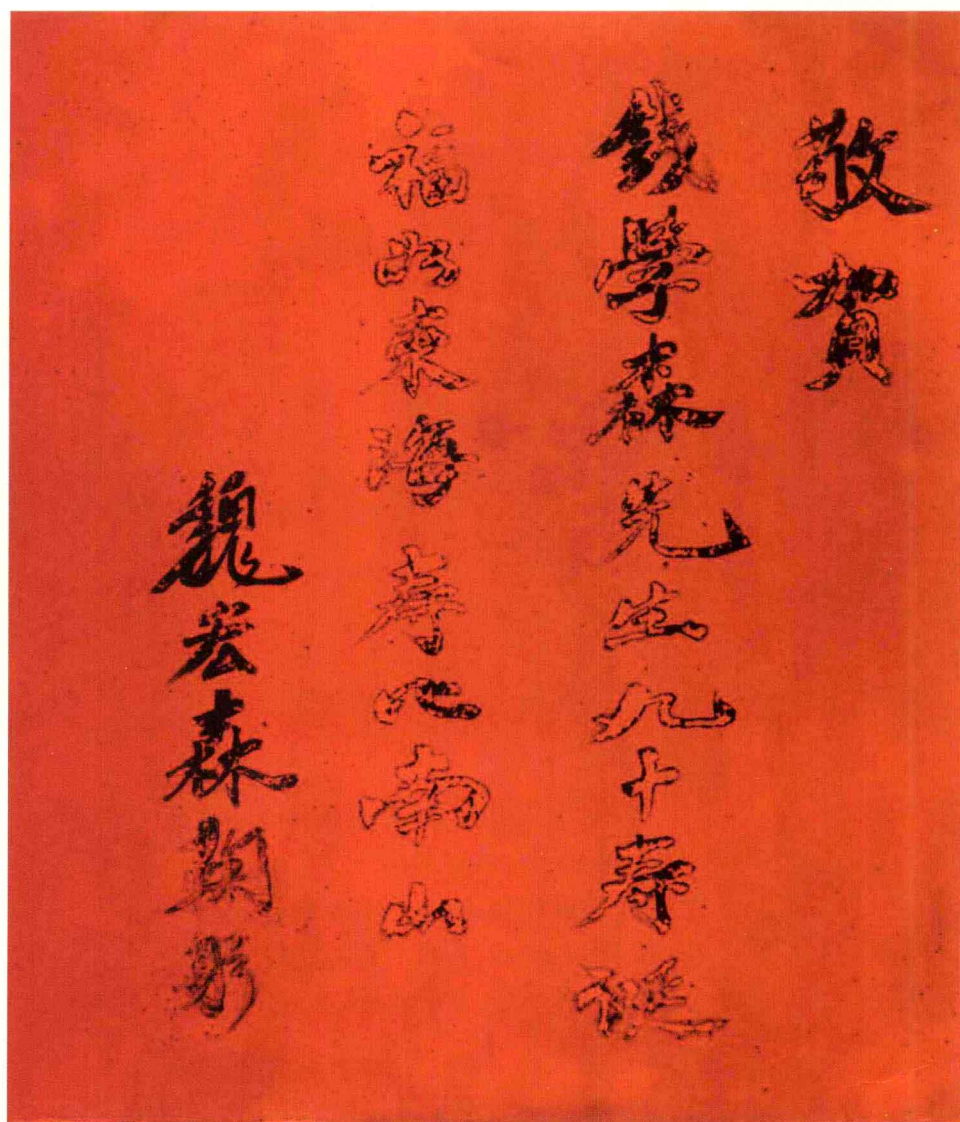 敬賀
錢學森先生九十寿诞
福如東海寿比南山
魏宏森鞠躬